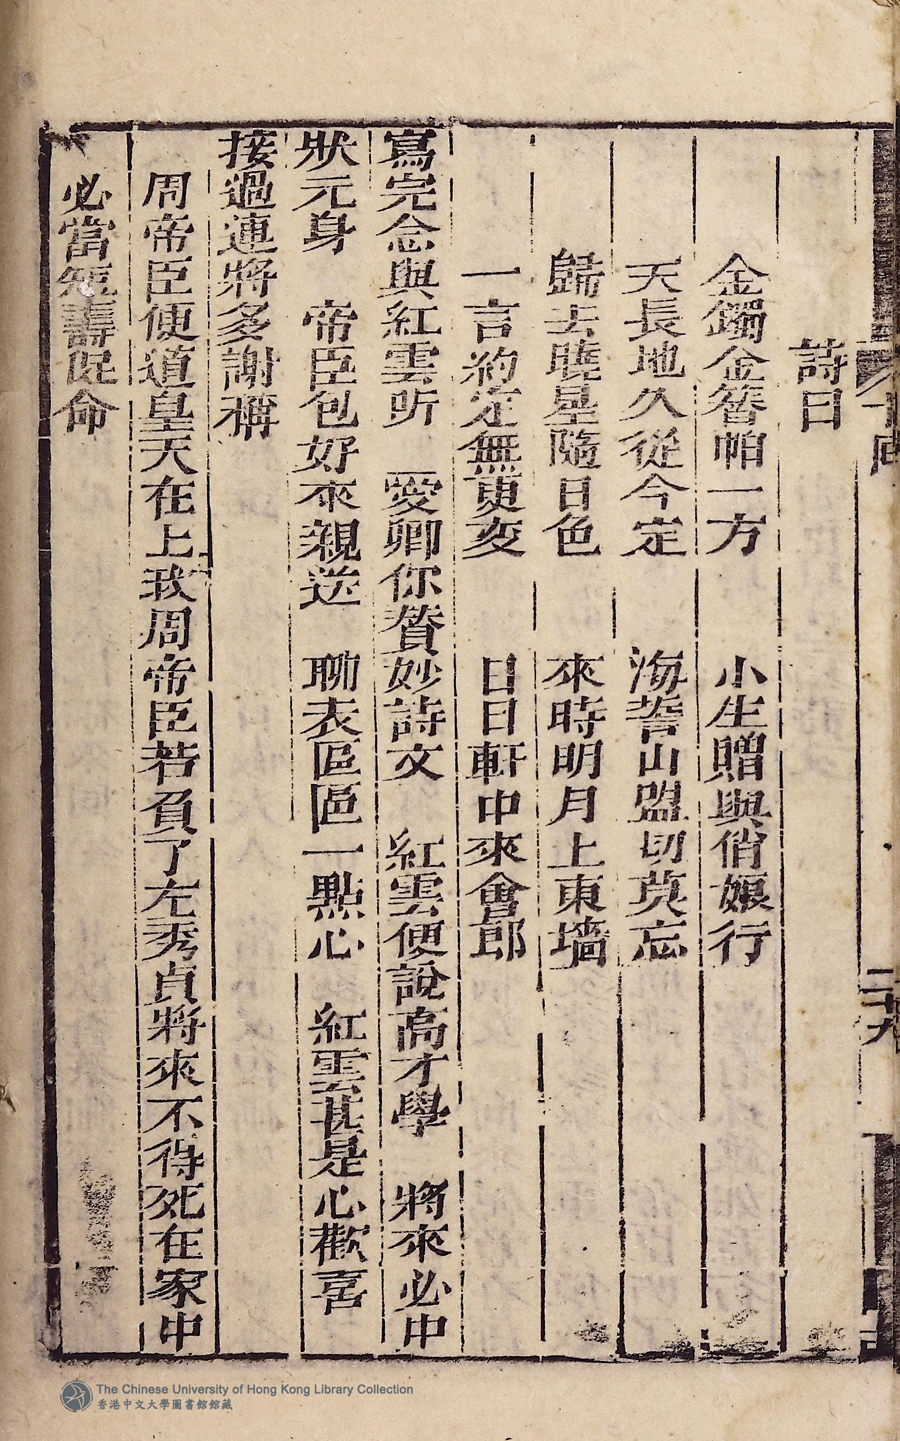 詩曰
金鐲金簪帕一方　小生贈與俏娘行
天長地久從今定　海誓山盟切莫忘
歸去曉星隨日色　來時明月上東墻
一言約定無更変　日日軒中來會郎
寫完念與紅雲听　愛卿你賛妙詩文　紅雲便說高才學　將來必中
狀元身　帝臣包好來親送　聊表區區一點心　紅雲甚是心歡喜
接過連將多謝稱
周帝臣便道皇天在上我周帝臣若負了左秀貞將來不得死在家中
必當短壽促命
二十九
The Chinese University of Hong Kong Library Collection
香港中文大學圖書館館藏